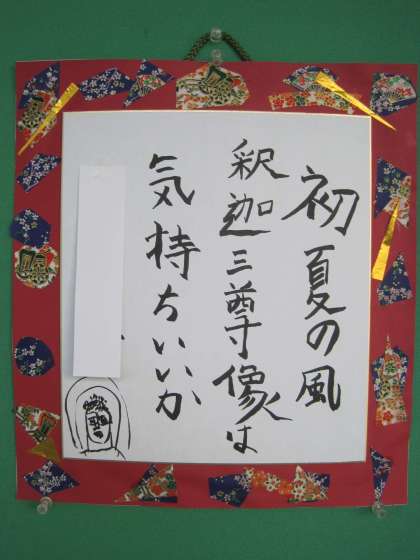 初夏の風
釈迦三尊像は
気持ちいいか